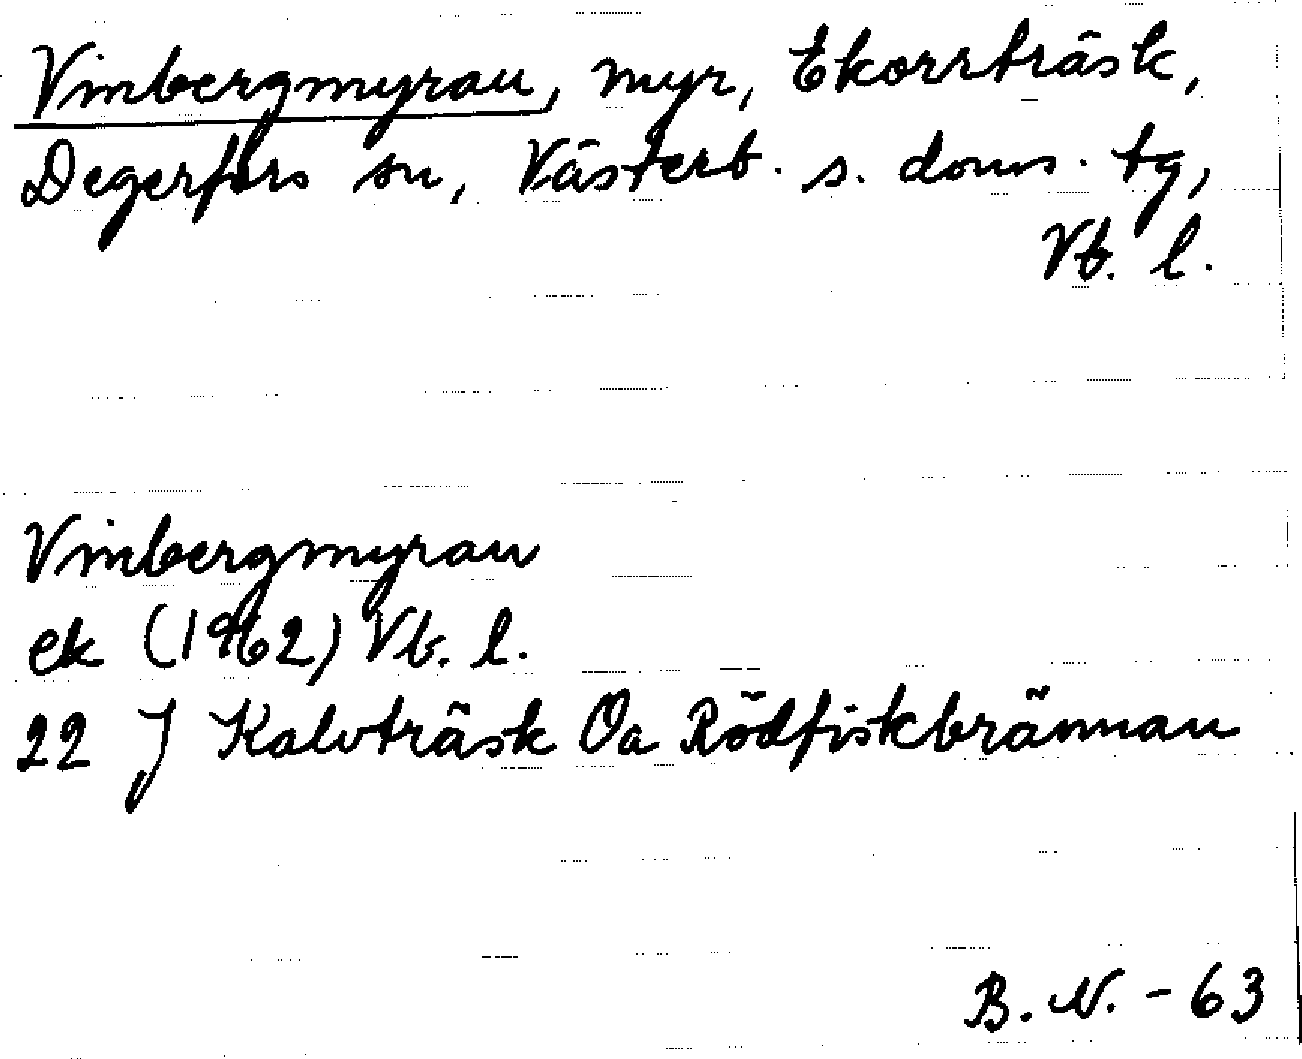 Vinbergmyran, myr, Ekorrträsk,
Degerfors sn, Västerb. s. doms. tg,
Vb. l.
Vinbergmyran
ek (1962) Vb. l.
22 J Kalvträsk Oa Rödfiskbrännan
B. N. - 63